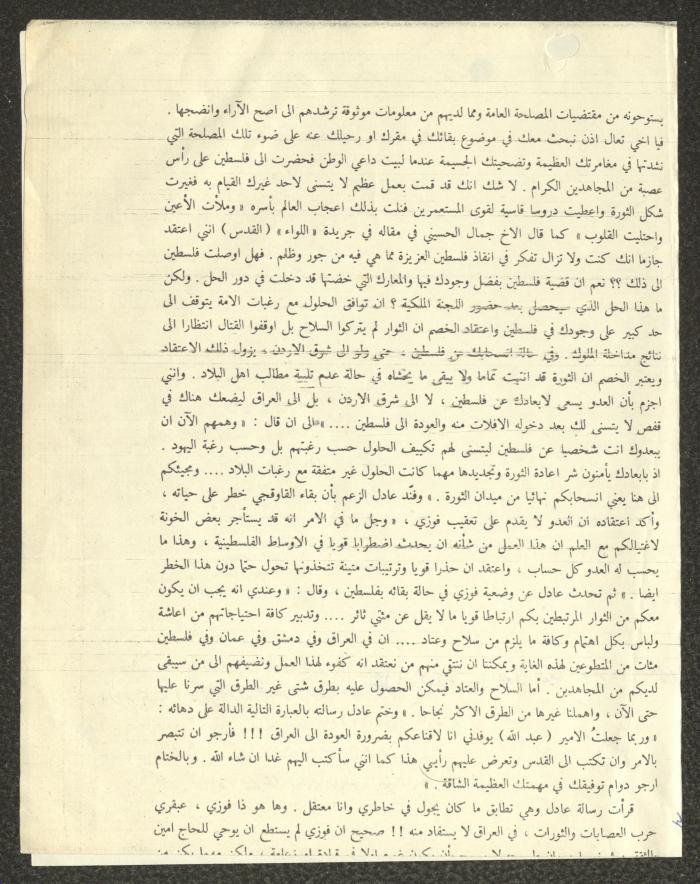 يستوحونه من مقتضيات المصلحة العامة ومما لديهم من معلومات موثوقة ترشدهم الى اصح الآراء وانضجها .
فيا اخي تعال اذن نبحث معك في موضوع بقائك في مقرك او رحيلك عنه على ضوء تلك المصلحة التي
نشدتها في مغامرتك العظيمة وتضحيتك الجسيمة عندما لبيت داعي الوطن فحضرت الى فلسطين على رأس
عصبة من المجاهدين الكرام . لا شك انك قد قمت بعمل عظيم لا يتسنى لاحد غيرك القيام به فغيرت
شكل الثورة واعطيت دروسا قاسية لقوى المستعمرين فنلت بذلك اعجاب العالم بأسره « وملأت الأعين
واحتليت القلوب » كما قال الاخ جمال الحسيني في مقاله في جريدة « اللواء » ( القدس ) انني اعتقد
جازما انك كنت ولا تزال تفكر في انقاذ فلسطين العزيزة مما هي فيه من جور وظلم . فهل اوصلت فلسطين
الى ذلك ؟؟ نعم ان قضية فلسطين بفضل وجودك فيها والمعارك التي خضتها قد دخلت في دور الحل . ولكن
ما هذا الحل الذي سيحصل بعد حضور اللجنة الملكية ؟ ان توافق الحلول مع رغبات الامة يتوقف الى
حد كبير على وجودك في فلسطين واعتقاد الخصم ان الثوار لم يتركوا السلاح بل اوقفوا القتال انتظارا الى
نتائج مداخلة الملوك . وفي حالة انسحابك عن فلسطين ، حتى ولو الى شرق الاردن ، يزول ذلك الاعتقاد
ويعتبر الخصم ان الثورة قد انتهت تماما ولا يبقى ما يخشاه في حالة عدم تلبية مطالب اهل البلاد . وانني
اجزم بأن العدو يسعى لابعادك عن فلسطين ، لا الى شرق الاردن ، بل الى العراق ليضعك هناك في
قفص لا يتسنى لك بعد دخوله الافلات منه والعودة الى فلسطين .... » الى ان قال : « وهمهم الآن ان
يبعدوك انت شخصيا عن فلسطين ليتسنى لهم تكييف الحلول حسب رغبتهم بل وحسب رغبة اليهود .
اذ بابعادك يأمنون شر اعادة الثورة وتجديدها مهما كانت الحلول غير متفقة مع رغبات البلاد .... ومجيئكم
الى هنا يعني انسحابكم نهائيا من ميدان الثورة . » وفنّد عادل الزعم بأن بقاء القاوقجي خطر على حياته ،
وأكد اعتقاده ان العدو لا يقدم على تعقيب فوزي ، « وجل ما في الامر انه قد يستأجر بعض الخونة
لاغتيالكم مع العلم ان هذا العمل من شأنه ان يحدث اضطرابا قويا في الاوساط الفلسطينية ، وهذا ما
يحسب له العدو كل حساب ، واعتقد ان حذرا قويا وترتيبات متينة تتخذونها تحول حتما دون هذا الخطر
ايضا . » ثم تحدث عادل عن وضعية فوزي في حالة بقائه بفلسطين ، وقال : « وعندي انه يجب ان يكون
معكم من الثوار المرتبطين بكم ارتباطا قويا ما لا يقل عن مئتي ثائر .... وتدبير كافة احتياجاتهم من اعاشة
ولباس بكل اهتمام وكافة ما يلزم من سلاح وعتاد .... ان في العراق وفي دمشق وفي عمان وفي فلسطين
مئات من المتطوعين لهذه الغاية ويمكننا ان ننتقي منهم من نعتقد انه كفوء لهذا العمل ونضيفهم الى من سيبقى
لديكم من المجاهدين . أما السلاح والعتاد فيمكن الحصول عليه بطرق شتى غير الطرق التي سرنا عليها
حتى الآن ، واهملنا غيرها من الطرق الاكثر نجاحا . » وختم عادل رسالته بالعبارة التالية الدالة على دهائه :
« وربما جعلتُ الامير ( عبد الله ) يوفدني انا لاقناعكم بضرورة العودة الى العراق !!! فأرجو ان تتبصر
بالامر وان تكتب الى القدس وتعرض عليهم رأيي هذا كما انني سأكتب اليهم غدا ان شاء الله . وبالختام
ارجو دوام توفيقك في مهمتك العظيمة الشاقة . »
قرأت رسالة عادل وهي تطابق ما كان يجول في خاطري وانا معتقل . وها هو ذا فوزي ، عبقري
حرب العصابات والثورات ، في العراق لا يستفاد منه !! صحيح ان فوزي لم يستطع ان يوحي للحاج امين